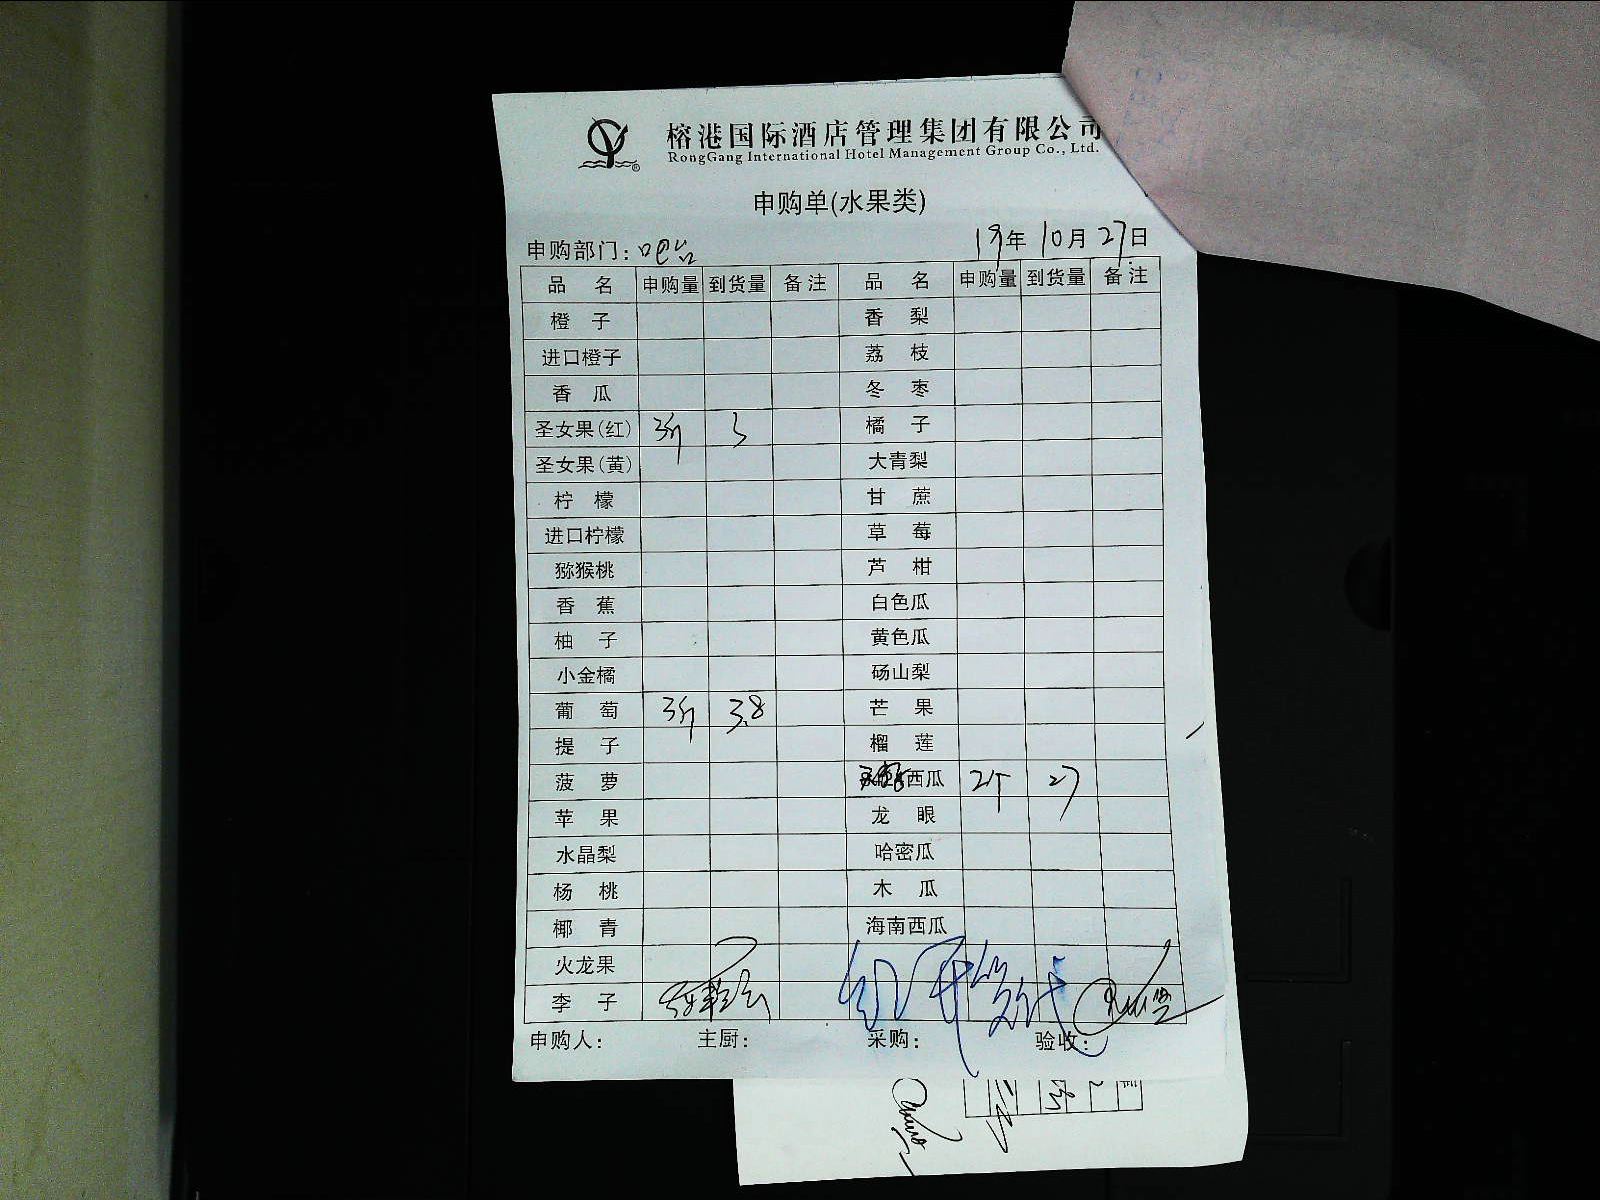 榕港国际酒店管理集团有限公司
RongGang International Hotel Management Group Co., Ltd.
申购单(水果类)
申购部门：吧台 19年10月27日
品 名 申购量 到货量 备注 品 名 申购量 到货量 备注
橙 子 香 梨
进口橙子 荔 枝
香 瓜 冬 枣
圣女果(红) 3斤 3 橘 子
圣女果(黄) 大青梨
柠 檬 甘 蔗
进口柠檬 草 莓
猕猴桃 芦 柑
香 蕉 白色瓜
柚 子 黄色瓜
小金橘 砀山梨
葡 萄 3斤 3.8 芒 果
提 子 榴 莲
菠 萝 西瓜 2个 27
苹 果 龙 眼
水晶梨 哈密瓜
杨 桃 木 瓜
椰 青 海南西瓜
火龙果
李 子
申购人： 主厨： 采购： 验收：